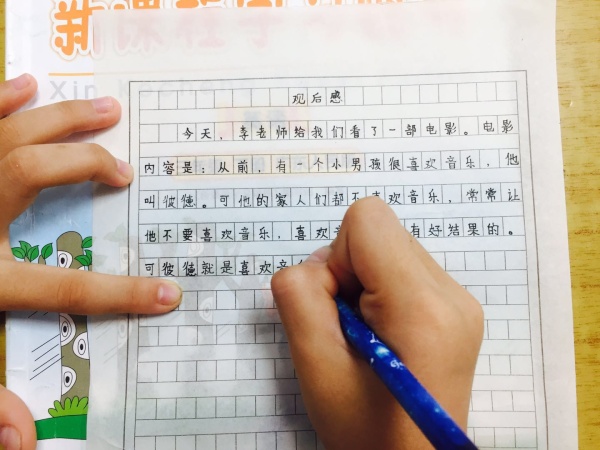 新课程
Xin
观后感
今天，李老师给我们看了一部电影。电影
内容是：从前，有一个小男孩很喜欢音乐，他
叫彼德。可他的家人们都不喜欢音乐，常常让
他不要喜欢音乐，喜欢 有好结果的。
可彼德就是喜欢音